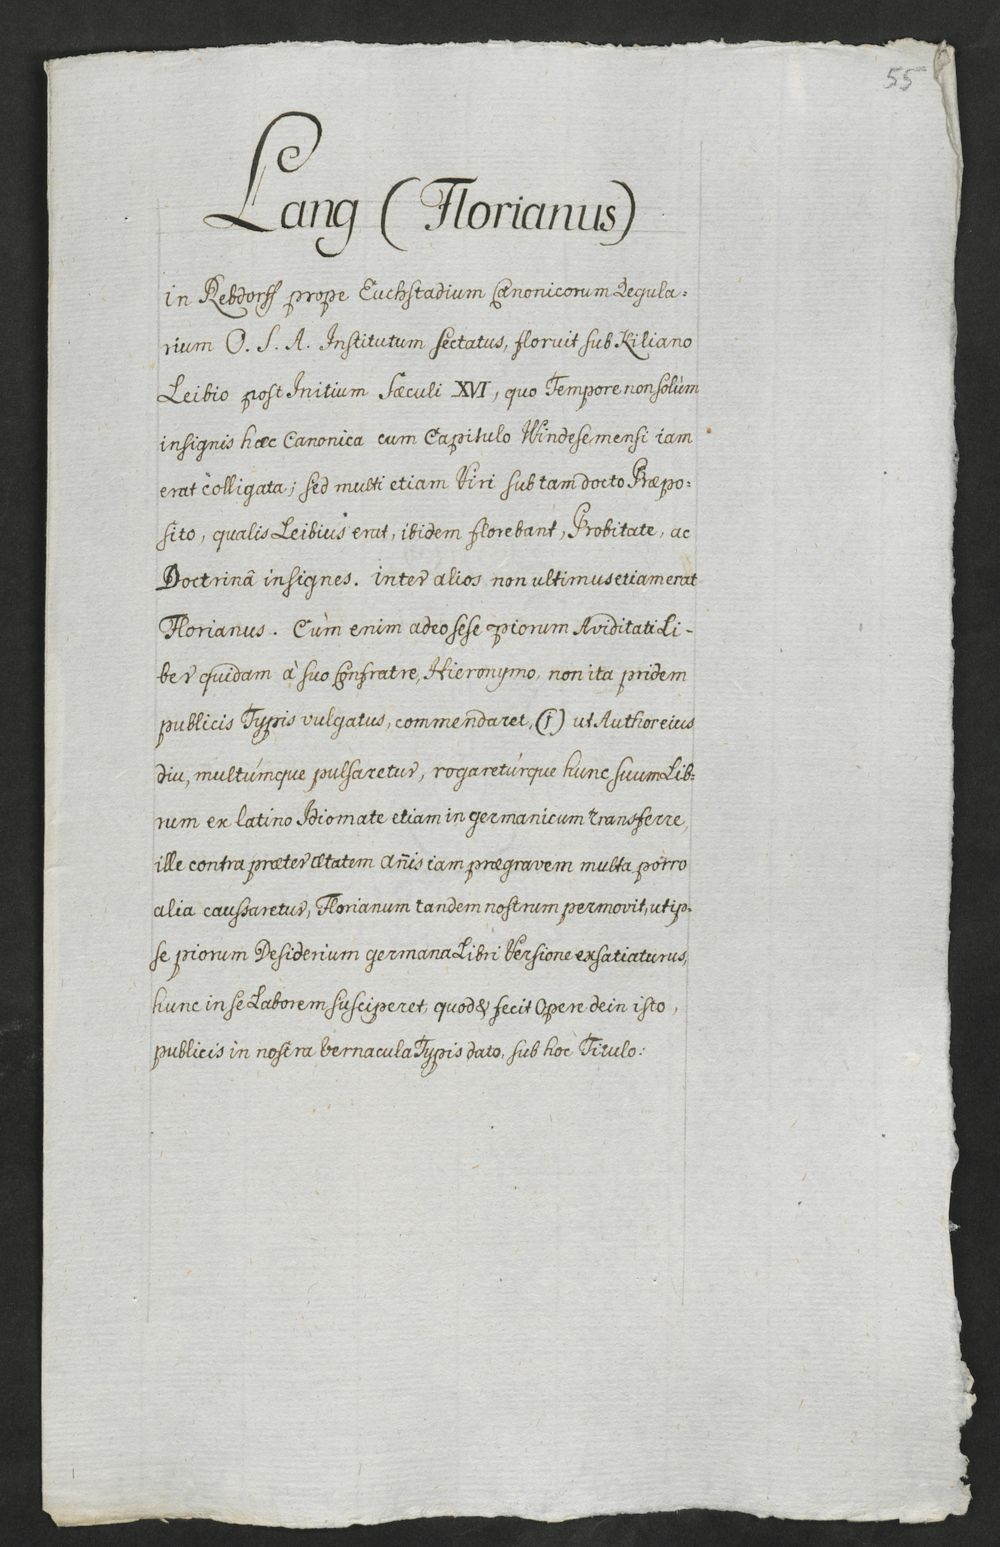 55
Lang (Florianus)
in Rebdorff prope Euchstadium Canonicorum Regula=
rium O. S. A. Institutum sectatus, floruit sub Kiliano
Leibio post Initium Sæculi XVI, quo Tempore non solùm
insignis hæc Canonica cum Capitulo Windesemensi iam
erat colligata; sed multi etiam Viri sub tam docto Præpo=
sito, qualis Leibius erat, ibidem florebant, Probitate, ac
Doctrinâ insignes. inter alios non ultimus etiam erat
Florianus. Cùm enim adeo sese piorum Aviditati Li-
ber quidam à suo Confratre, Hieronymo, non ita pridem
publicis Typis vulgatus, commendaret, (j) ut Author eius
diu, multúmque pulsaretur, rogaretúrque hunc suum Lib=
rum ex latino Idiomate etiam in germanicum transferre,
ille contra præter ætatem an̄is iam prægravem multa porro
alia caussaretur, Florianum tandem nostrum permovit, ut ip=
se piorum Desiderium germana Libri Versione exsatiaturus,
hunc in se Laborem susciperet, quod & fecit Opere dein isto,
publicis in nostra vernacula Typis dato, sub hoc Titulo: